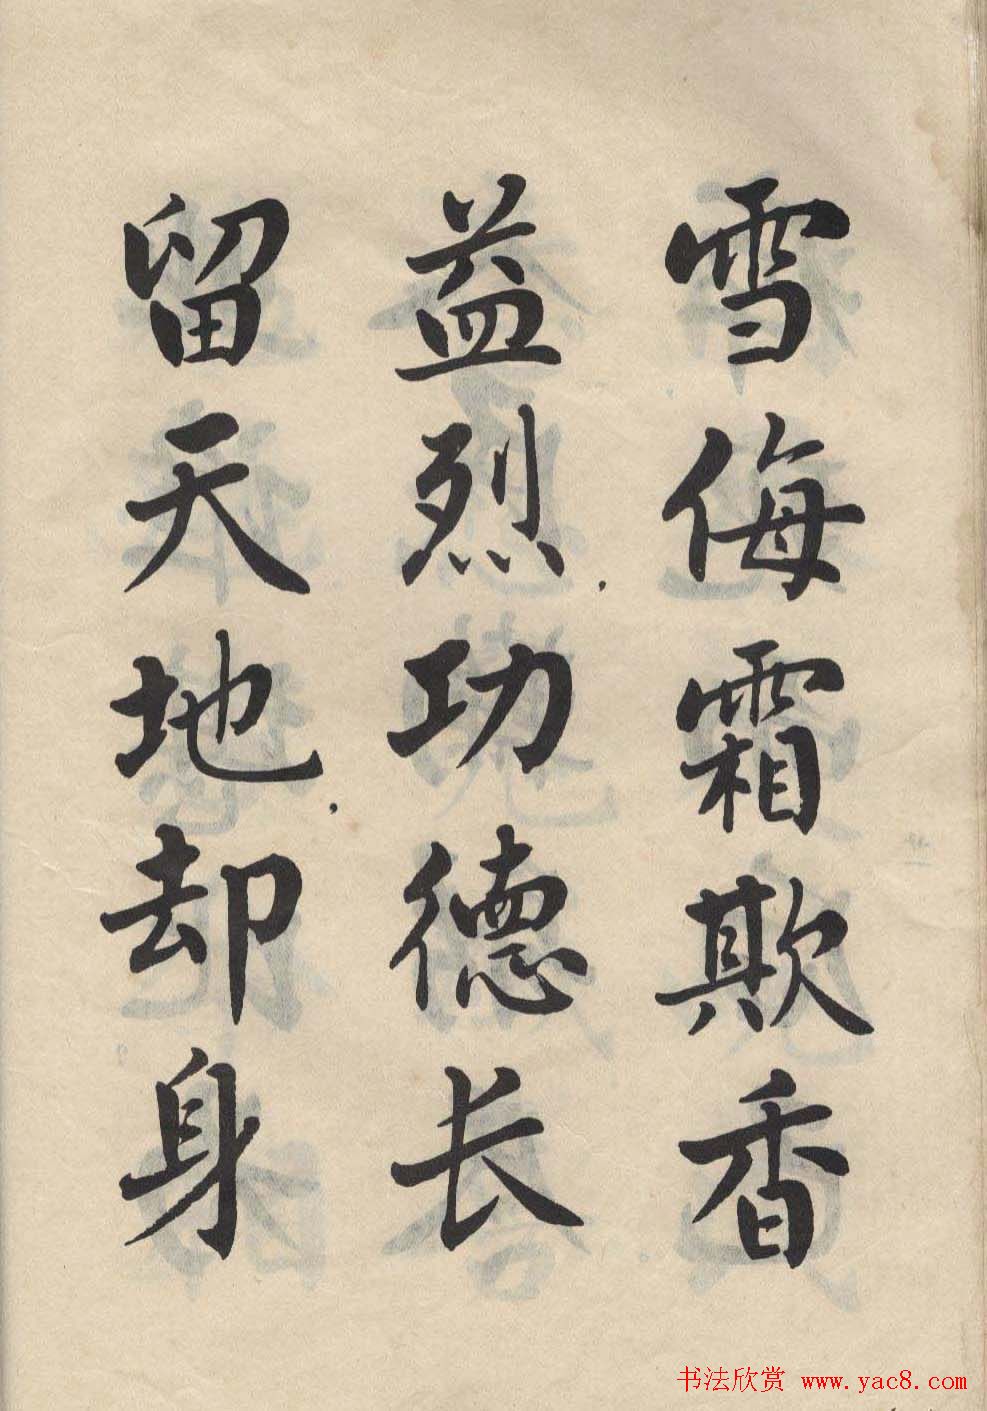 雪侮霜欺香
益烈功德长
留天地却身
书法欣赏 www.yac8.com